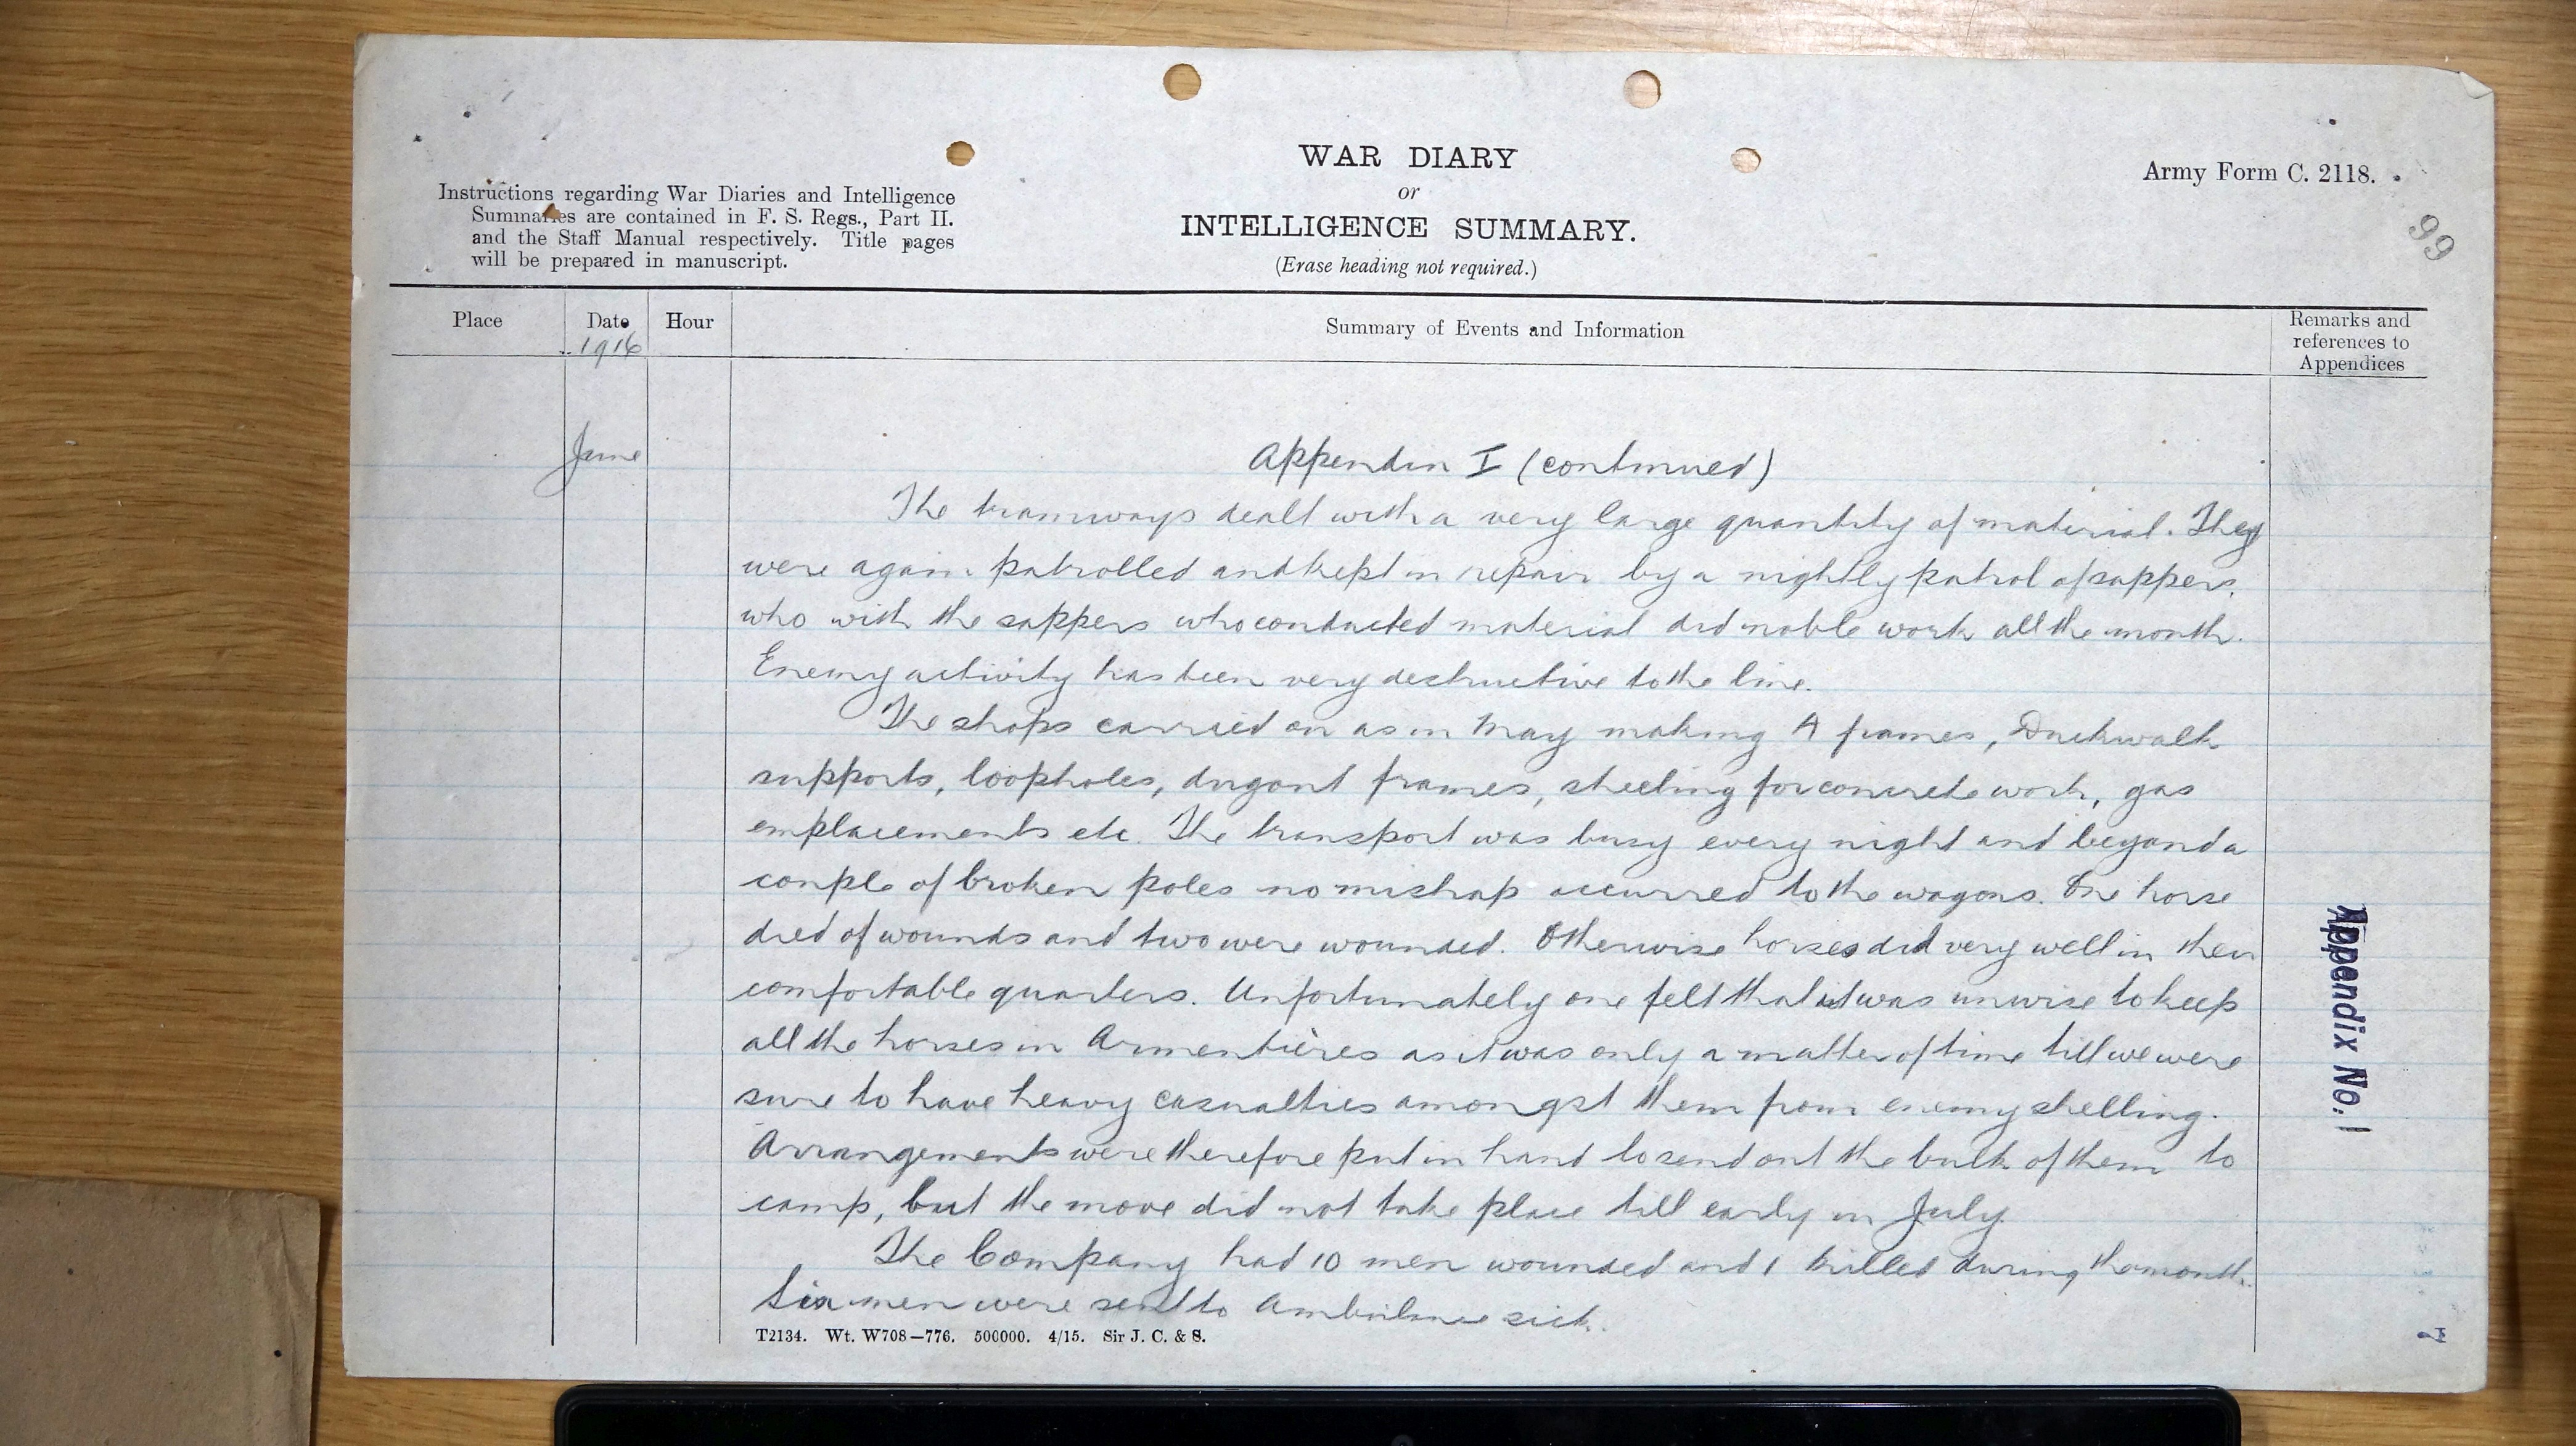 WAR DIARY
or
INTELLIGENCE SUMMARY.
(Erase heading not required.)
Army Form C. 2118.
Instructions regarding War Diaries and Intelligence
Summaries are contained in F. S. Regs., Part II.
and the Staff Manual respectively. Title pages
will be prepared in manuscript.
99
Place
Date
1916
Hour
Summary of Events and Information
Remarks and
references to
Appendices
June
Appendix I (continued)
The tramways dealt with a very large quantity of material. They
were again patrolled and kept in repair by a nightly patrol of sappers,
who with the sappers who conducted material did noble work all the month.
Enemy activity has been very destructive to the line.
The shops carried on as in May making A frames, Duckwalk
supports, loopholes, dugout frames, sheeting for concrete work, gas
emplacements etc. The transport was busy every night and beyond a
couple of broken poles no mishap occurred to the wagons. One horse
died of wounds and two were wounded. Otherwise horses did very well in their
comfortable quarters. Unfortunately one felt that it was unwise to keep
all the horses in Armentières as it was only a matter of time till we were
sure to have heavy casualties amongst them from enemy shelling.
Arrangements were therefore put in hand to send out the bulk of them to
camp, but the move did not take place till early in July.
The Company had 10 men wounded and 1 killed during the month.
Six men were sent to Ambulance sick.
Appendix No. 1
T2134. Wt. W708—776. 500000. 4/15. Sir J. C. & S.